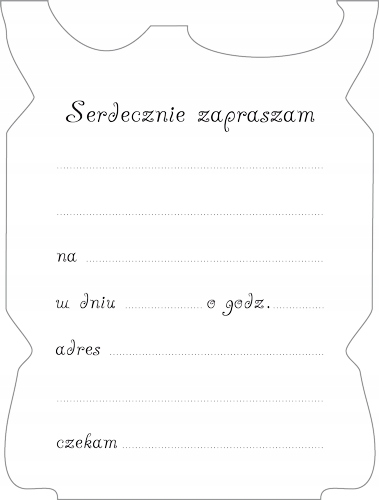 Serdecznie zapraszam
na
w dniu o godz.
adres
czekam